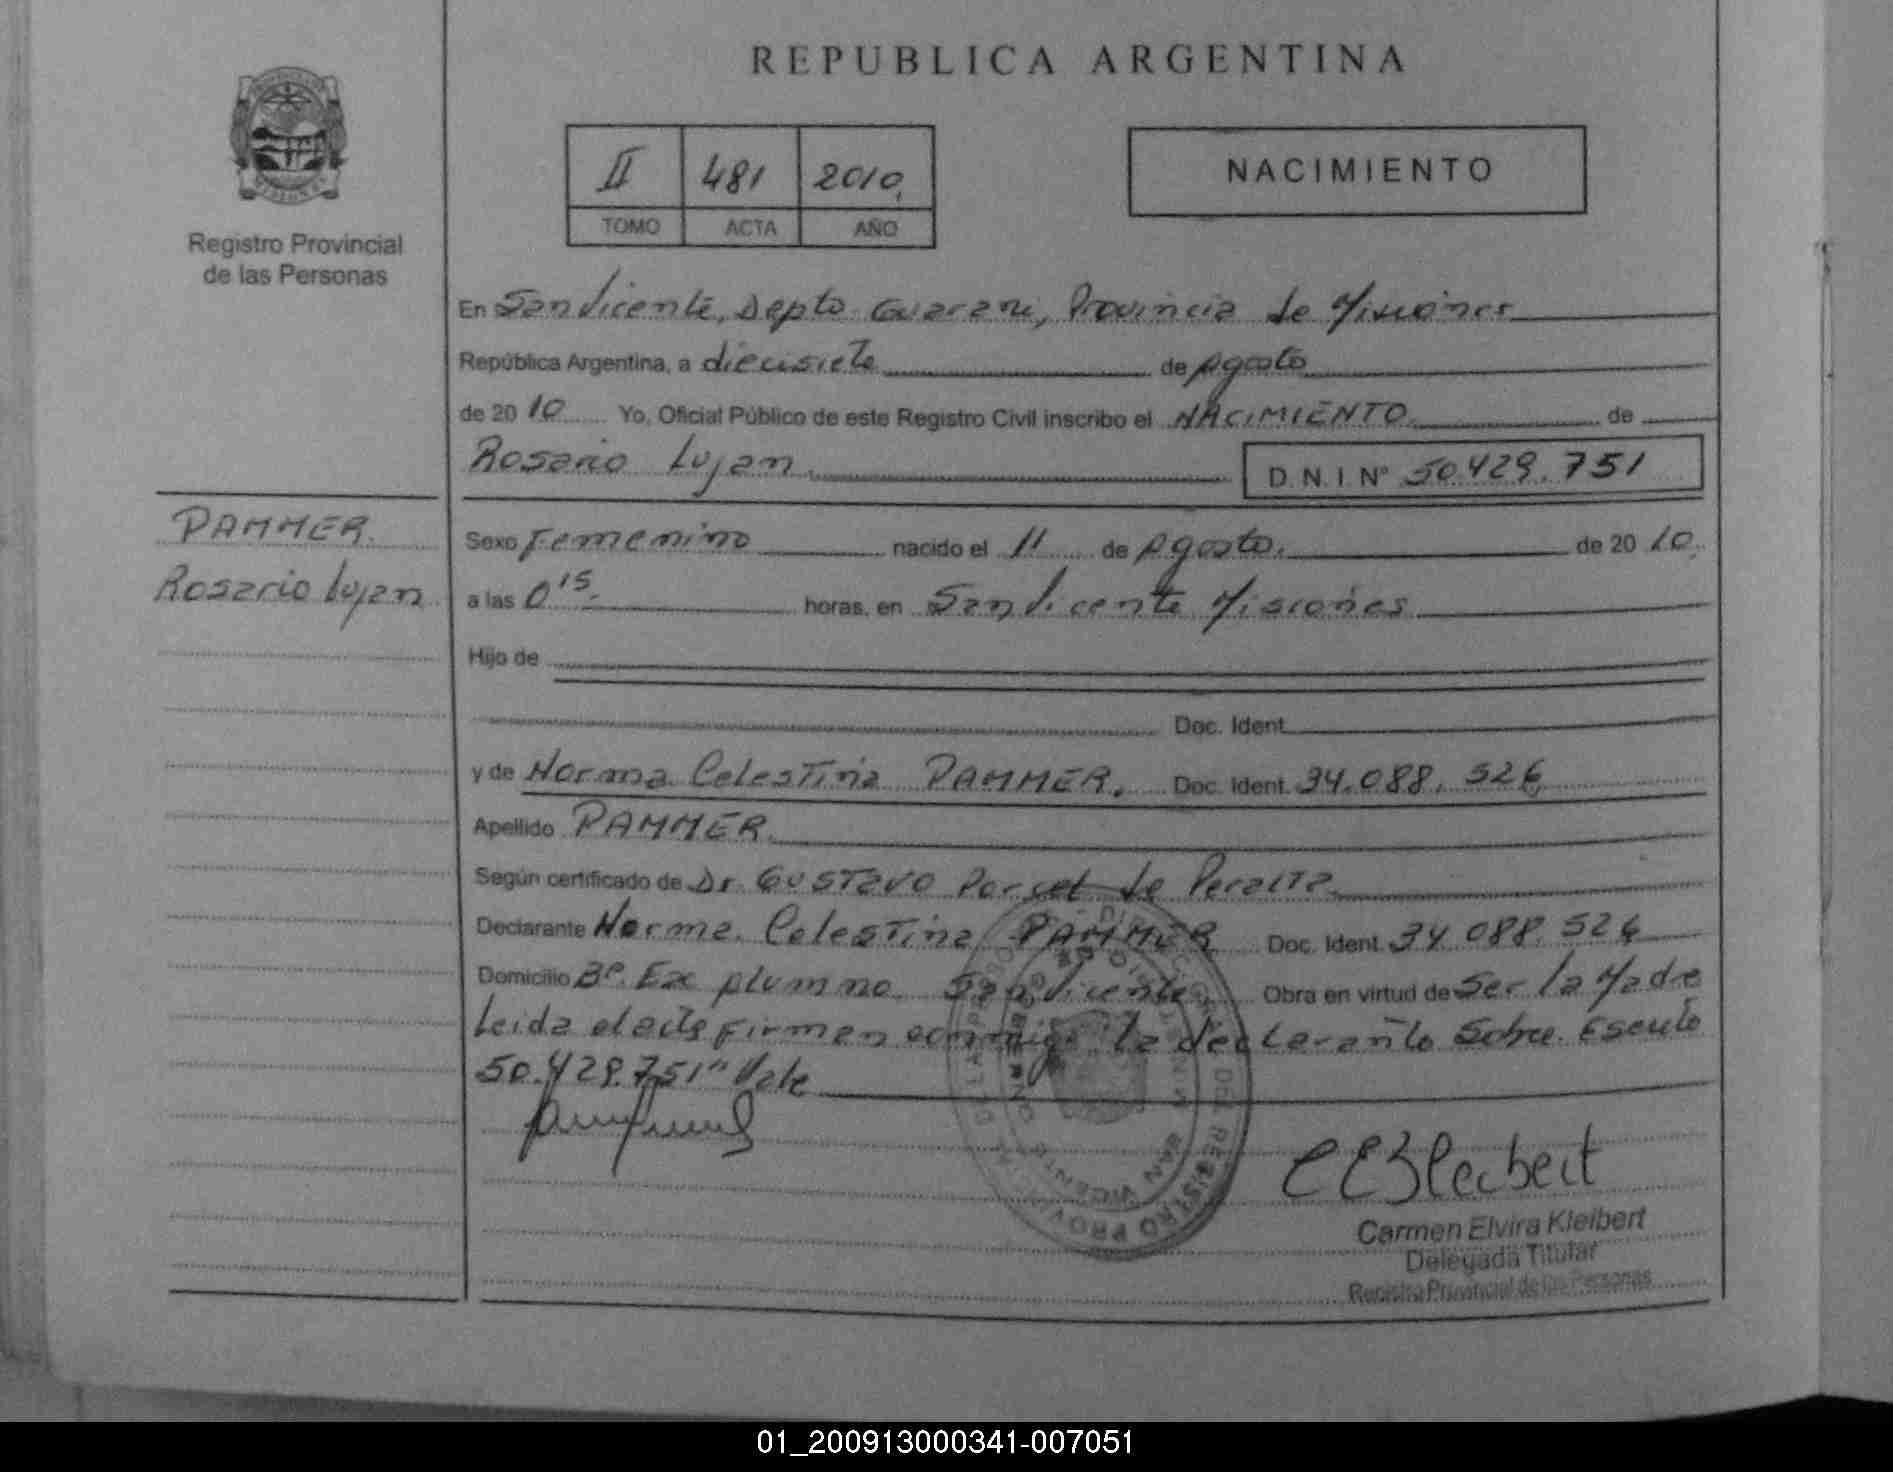 REPUBLICA ARGENTINA
II 481 2010
TOMO ACTA AÑO
NACIMIENTO
Registro Provincial
de las Personas
En San Vicente, Depto Guarani, Provincia de Misiones
República Argentina, a diecisiete de Agosto
de 20 10 Yo, Oficial Público de este Registro Civil inscribo el NACIMIENTO. de
Rosario Lujan. D.N.I. Nº 50.429.751
PAMMER.
Rosario Lujan
Sexo Femenino nacido el 11 de Agosto. de 20 10.
a las 0 15. horas, en San Vicente Misiones
Hijo de
Doc. Ident.
y de Norma Celestina PAMMER. Doc. Ident. 34.088.526
Apellido PAMMER.
Según certificado de Dr. Gustavo de Peralta
Declarante Norma Celestina PAMMER Doc. Ident. 34 088.526
Domicilio Bº. Ex Alumno San Vicente Obra en virtud de Ser la Madre
Leida el acta firman conmigo la declarante Sobre Escrito
50.429.751" Vale
CEKleibert
Carmen Elvira Kleibert
Delegada Titular
Registro Provincial de las Personas
SAN VICENTE
01_200913000341-007051